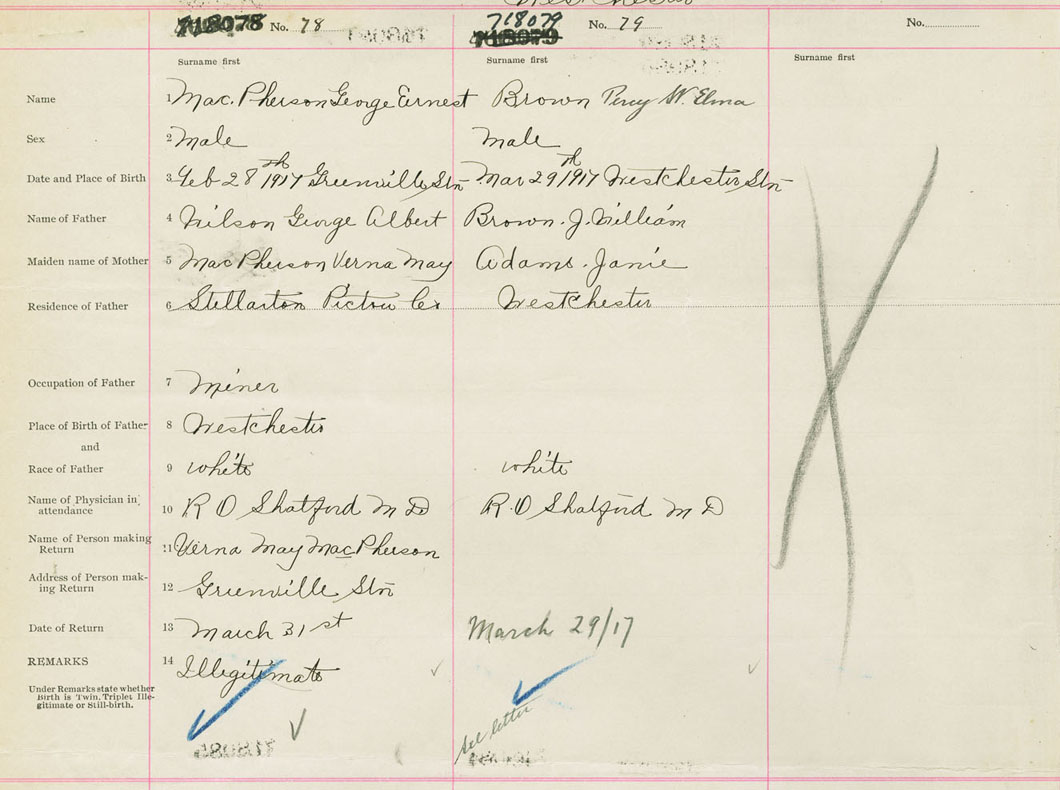 718078 No. 78 718079 No. 79 No.
718079
Surname first Surname first Surname first
Name 1 MacPherson George Ernest Brown Percy W. Elma
Sex 2 Male Male
Date and Place of Birth 3 Feb 28th 1917 Greenville Stn Mar 29th 1917 Westchester Stn
Name of Father 4 Wilson George Albert Brown. J. William
Maiden name of Mother 5 MacPherson Verna May Adams. Janie
Residence of Father 6 Stellarton Pictou Co. Westchester
Occupation of Father 7 Miner
Place of Birth of Father 8 Westchester
and
Race of Father 9 white white
Name of Physician in attendance 10 R O Shatford M D R. O Shatford M D
Name of Person making Return 11 Verna May MacPherson
Address of Person mak-ing Return 12 Greenville Stn
Date of Return 13 March 31st March 29/17
REMARKS 14 Illegitimate
Under Remarks state whether
Birth is Twin, Triplet Ille-
gitimate or Still-birth.
See letter